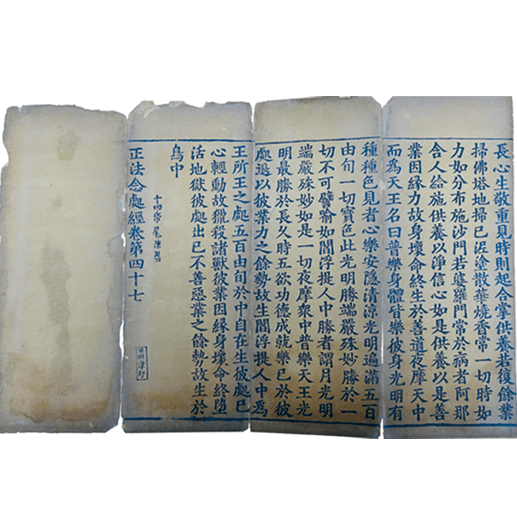 長心生敬重見時則起合掌供養若後餘業
掃佛塔地掃已泥塗散華燒香常一切時如
力如分布施沙門若婆羅門常於病者阿那
含人給施供養以淨信心如是供養以是善
業因緣力故身壞命終生於善道夜摩天中
而為天王名曰普樂身體皆樂彼身光明有
種種色見者心樂安隱清涼光明遍滿五百
由旬一切寶色此光明勝端嚴殊妙勝於一
切不可譬喻如閻浮提人中勝者謂月光明
端嚴殊妙如是一切夜摩眾中普樂天王光
明最勝於長久時五欲功德成就樂已於彼
處退以彼業力之餘勢故生閻浮提人中為
王所王之處五百由旬於中自在生彼處已
心輕動故獵殺諸獸彼業因緣身壞命終墮
活地獄彼處出已不善惡業之餘勢故生於
鳥中
正法念處經卷第四十七